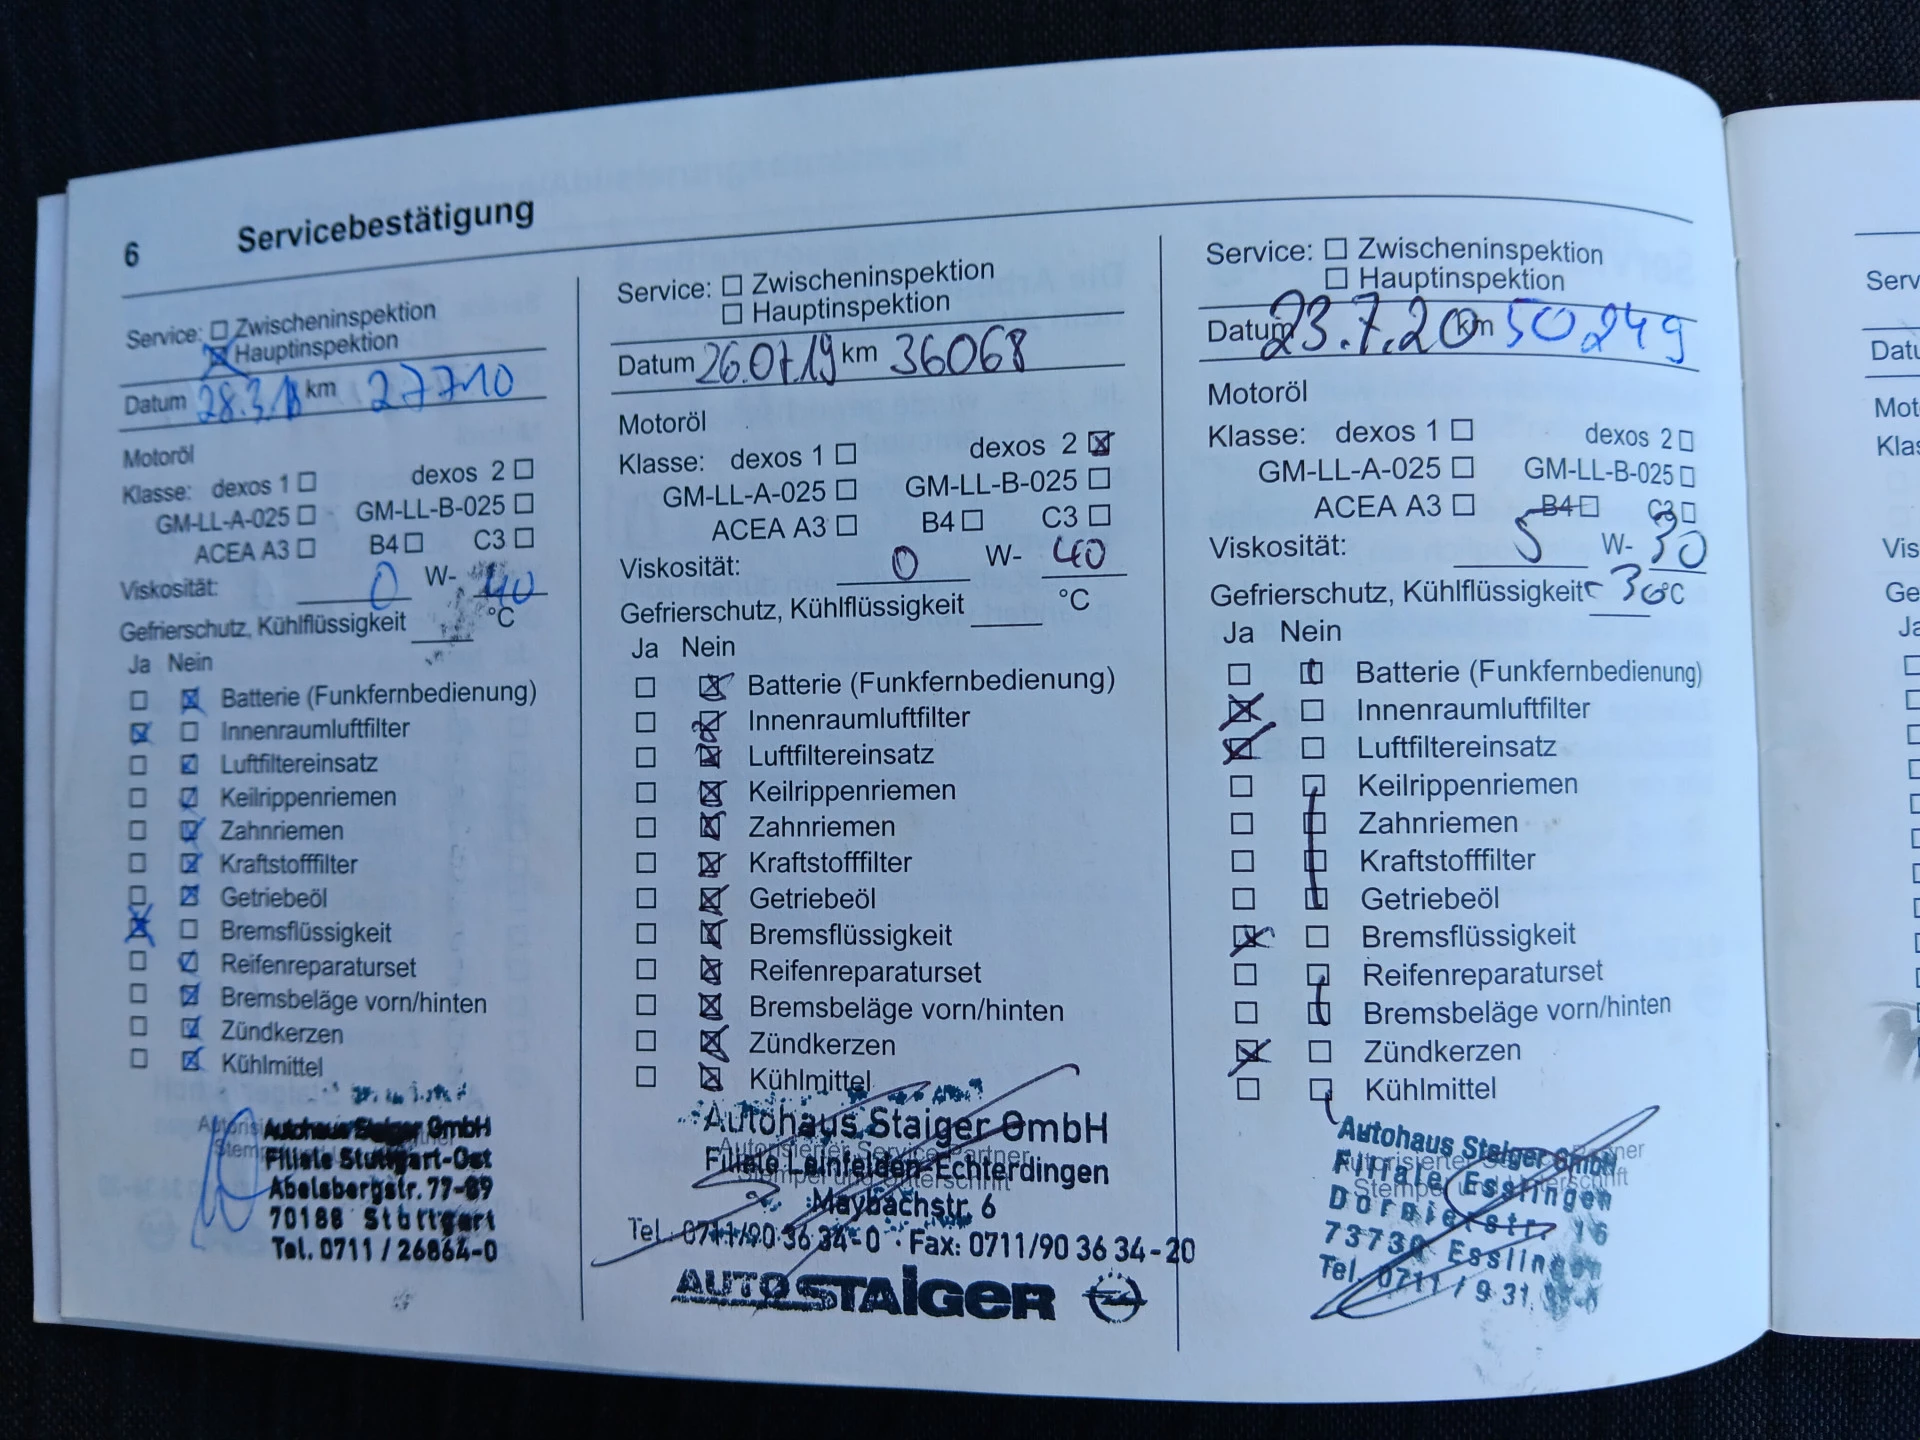 6 Servicebestätigung
Service: Zwischeninspektion
Hauptinspektion
Datum 28.3.18 km 27710
Motoröl
Klasse: dexos 1 dexos 2
GM-LL-A-025 GM-LL-B-025
ACEA A3 B4 C3
Viskosität: 0 W- 40
Gefrierschutz, Kühlflüssigkeit °C
Ja Nein
Batterie (Funkfernbedienung)
Innenraumluftfilter
Luftfiltereinsatz
Keilrippenriemen
Zahnriemen
Kraftstofffilter
Getriebeöl
Bremsflüssigkeit
Reifenreparaturset
Bremsbeläge vorn/hinten
Zündkerzen
Kühlmittel
Autohaus Staiger GmbH
Filiale Stuttgart-Ost
Abelsbergstr. 77-89
70188 Stuttgart
Tel. 0711 / 26864-0
Service: Zwischeninspektion
Hauptinspektion
Datum 26.07.19 km 36068
Motoröl
Klasse: dexos 1 dexos 2
GM-LL-A-025 GM-LL-B-025
ACEA A3 B4 C3
Viskosität: 0 W- 40
Gefrierschutz, Kühlflüssigkeit °C
Ja Nein
Batterie (Funkfernbedienung)
Innenraumluftfilter
Luftfiltereinsatz
Keilrippenriemen
Zahnriemen
Kraftstofffilter
Getriebeöl
Bremsflüssigkeit
Reifenreparaturset
Bremsbeläge vorn/hinten
Zündkerzen
Kühlmittel
Autohaus Staiger GmbH
Autorisierter Service Partner
Filiale Leinfelden-Echterdingen
Stempel und Unterschrift
Maybachstr. 6
Tel.: 0711/90 36 34-0 · Fax: 0711/90 36 34-20
AUTO STAIGER
Service: Zwischeninspektion
Hauptinspektion
Datum 23.7.20 km 50249
Motoröl
Klasse: dexos 1 dexos 2
GM-LL-A-025 GM-LL-B-025
ACEA A3 B4 C3
Viskosität: 5 W- 30
Gefrierschutz, Kühlflüssigkeit -30 °C
Ja Nein
Batterie (Funkfernbedienung)
Innenraumluftfilter
Luftfiltereinsatz
Keilrippenriemen
Zahnriemen
Kraftstofffilter
Getriebeöl
Bremsflüssigkeit
Reifenreparaturset
Bremsbeläge vorn/hinten
Zündkerzen
Kühlmittel
Autohaus Staiger GmbH
Filiale Esslingen
Dornierstr. 16
Esslingen
Tel. 0711 / 9 31
Serv
Datu
Mot
Klas
Vis
Ge
Ja